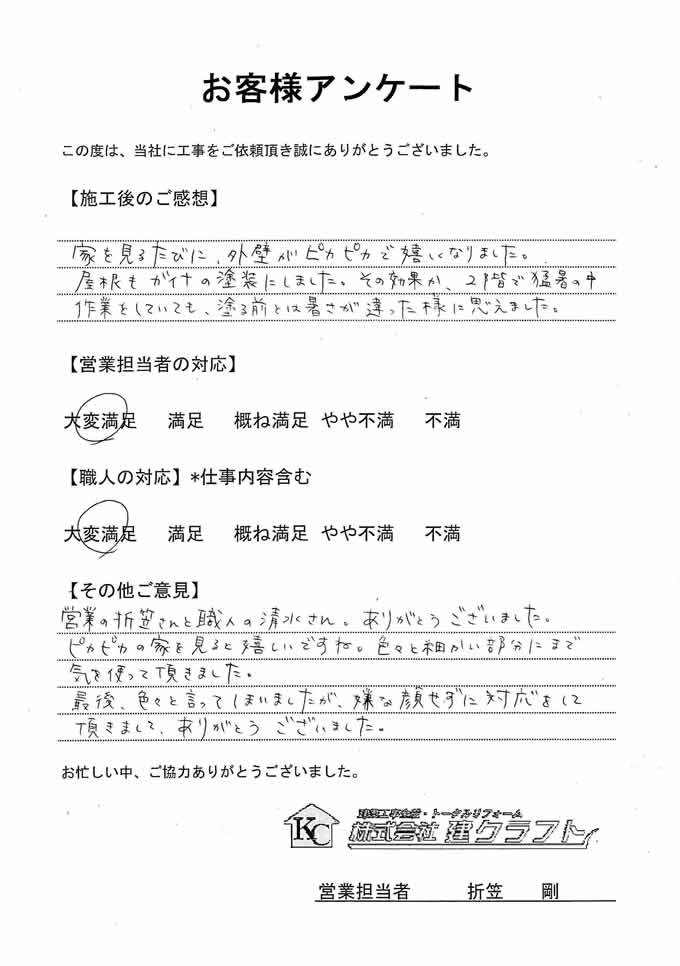 お客様アンケート
この度は、当社に工事をご依頼頂き誠にありがとうございました。
【施工後のご感想】
家を見るたびに、外壁がピカピカで嬉しくなりました。
屋根もガイナの塗装にしました。その効果か、2階で猛暑の中
作業をしていても、塗る前とは暑さが違った様に思えました。
【営業担当者の対応】
大変満足 満足 概ね満足 やや不満 不満
【職人の対応】*仕事内容含む
大変満足 満足 概ね満足 やや不満 不満
【その他ご意見】
営業の折笠さんと職人の清水さん。ありがとうございました。
ピカピカの家を見ると嬉しいですね。色々と細かい部分にまで
気を使って頂きました。
最後、色々と言ってしまいましたが、嫌な顔せずに対応をして
頂きまして、ありがとうございました。
お忙しい中、ご協力ありがとうございました。
KC
建築工事全般・トータルリフォーム
株式会社 建クラフト
営業担当者 折笠 剛